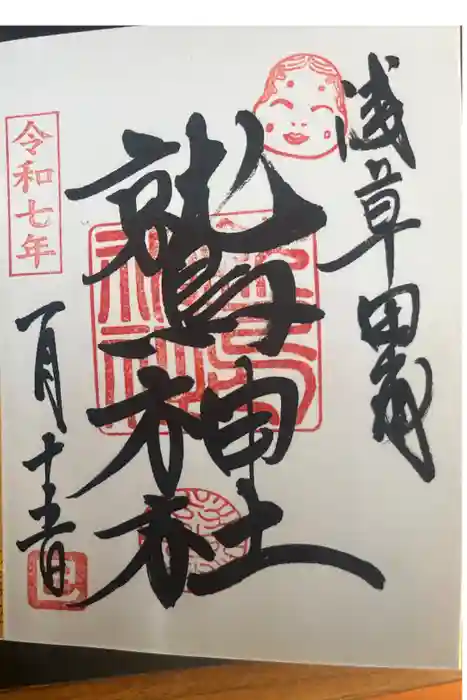 浅草田甫
鷲神社
令和七年
一月十五日
巳